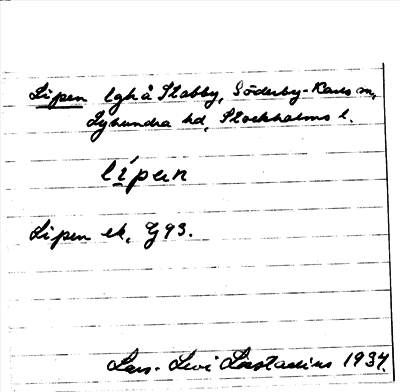 Lipen lgh å Stabby, Söderby-Karls sn,
Lyhundra hd, Stockholms l.
lípen
Lipen ek, G 93.
Lars-Levi Læstadius 1934.